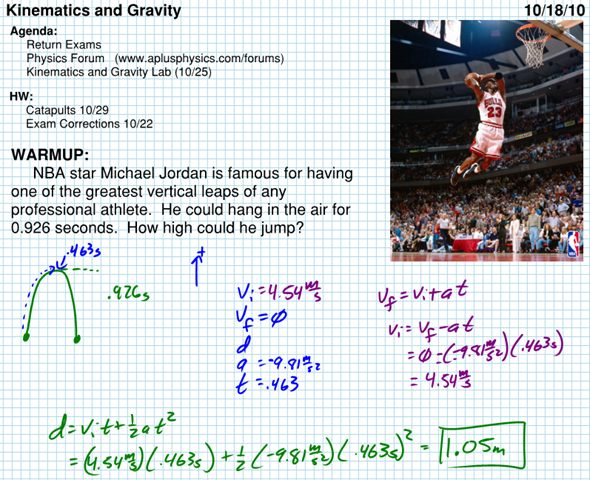 Kinematics and Gravity 10/18/10
Agenda:
Return Exams
Physics Forum (www.aplusphysics.com/forums)
Kinematics and Gravity Lab (10/25)
HW:
Catapults 10/29
Exam Corrections 10/22
WARMUP:
NBA star Michael Jordan is famous for having
one of the greatest vertical leaps of any
professional athlete. He could hang in the air for
0.926 seconds. How high could he jump?
BULLS
23
NBA
.463s
.926s
+
Vi = 4.54 m/s
Vf = Ø
d
a = -9.81 m/s²
t = .463
Vf = Vi + at
Vi = Vf - at
= Ø - (-9.81 m/s²)(.463s)
= 4.54 m/s
d = Vi t + ½ at²
= (4.54 m/s)(.463s) + ½ (-9.81 m/s²)(.463s)² = 1.05m